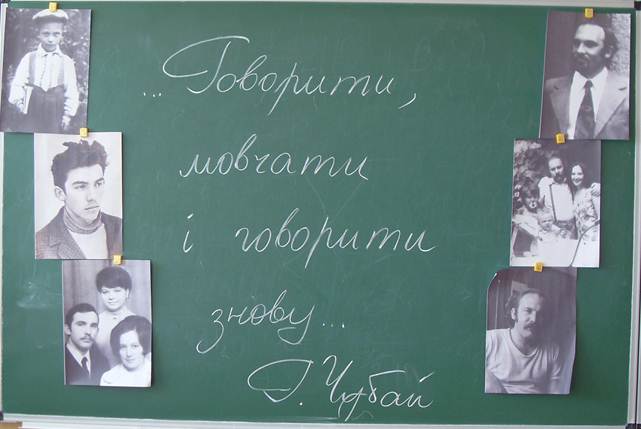 ...Говорити,
мовчати
і говорити
знову...
Г. Чубай